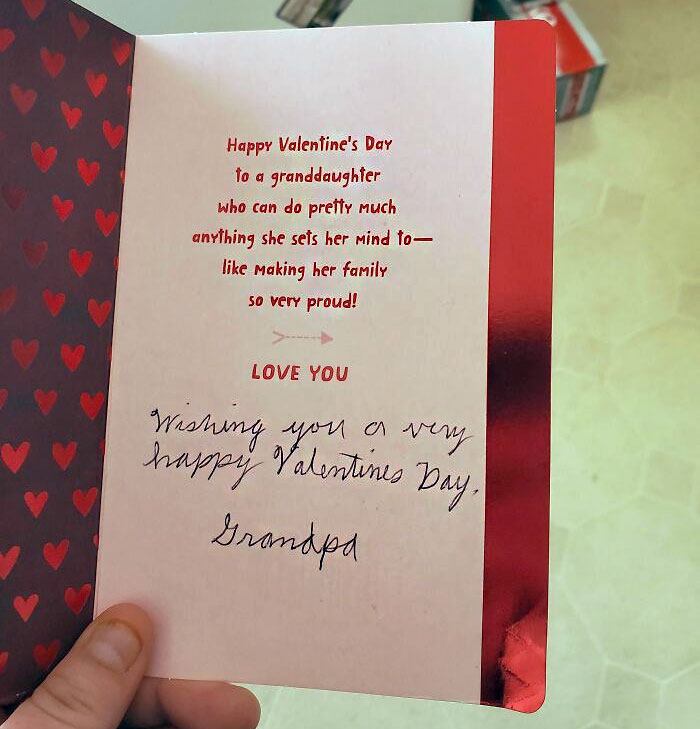 Happy Valentine's Day
to a granddaughter
who can do pretty much
anything she sets her mind to—
like making her family
so very proud!
LOVE YOU
Wishing you a very
happy Valentines Day.
Grandpa